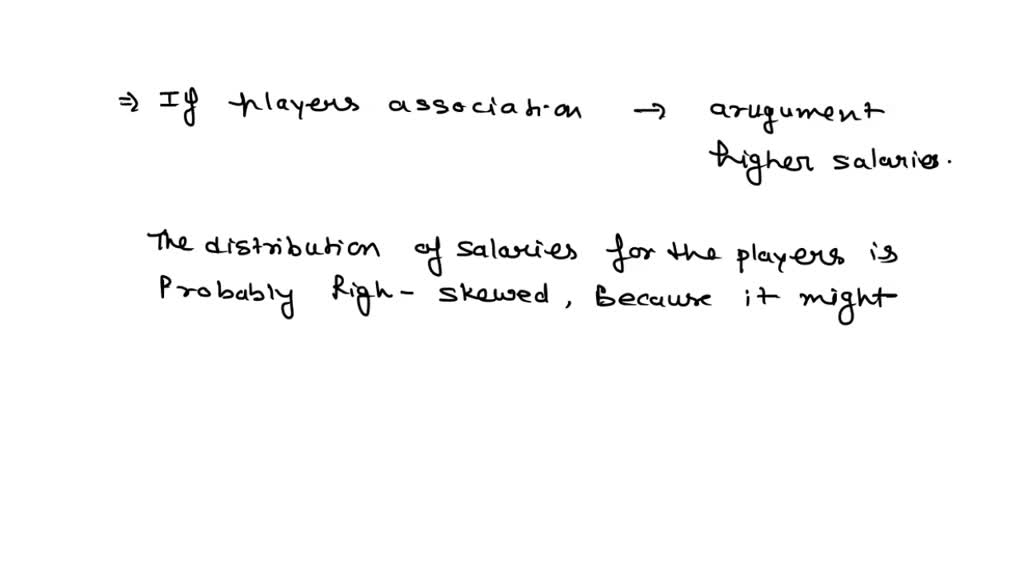 ⇒ If players association → arugument
higher salaries.
The distribution of salaries for the players is
Probably Righ - skewed, Because it might